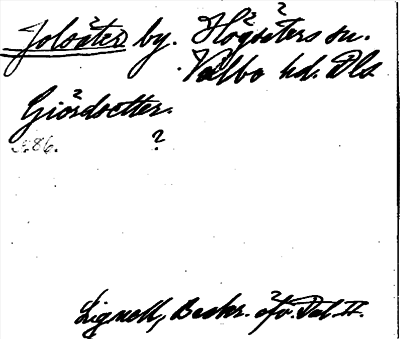 Jolsäter by. Högsäters sn.
Valbo hd. Dls
Giordsetter.
s. 86. ?
Lignell, Beskr. öfv. Dal II.